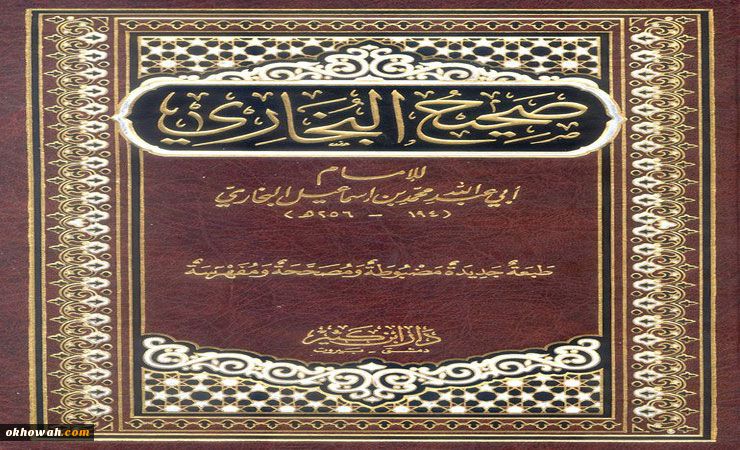 صَحِيحُ البُخَارِي
للإمام
أبي عبد الله محمد بن إسماعيل البخاري
(١٩٤ - ٢٥٦هـ)
طَبعَةٌ جَديدَةٌ مَضبُوطَةٌ وَمُصَحَّحَةٌ وَمُفَهْرَسَةٌ
دار ابن كثير
دمشق - بيروت
okhowah.com